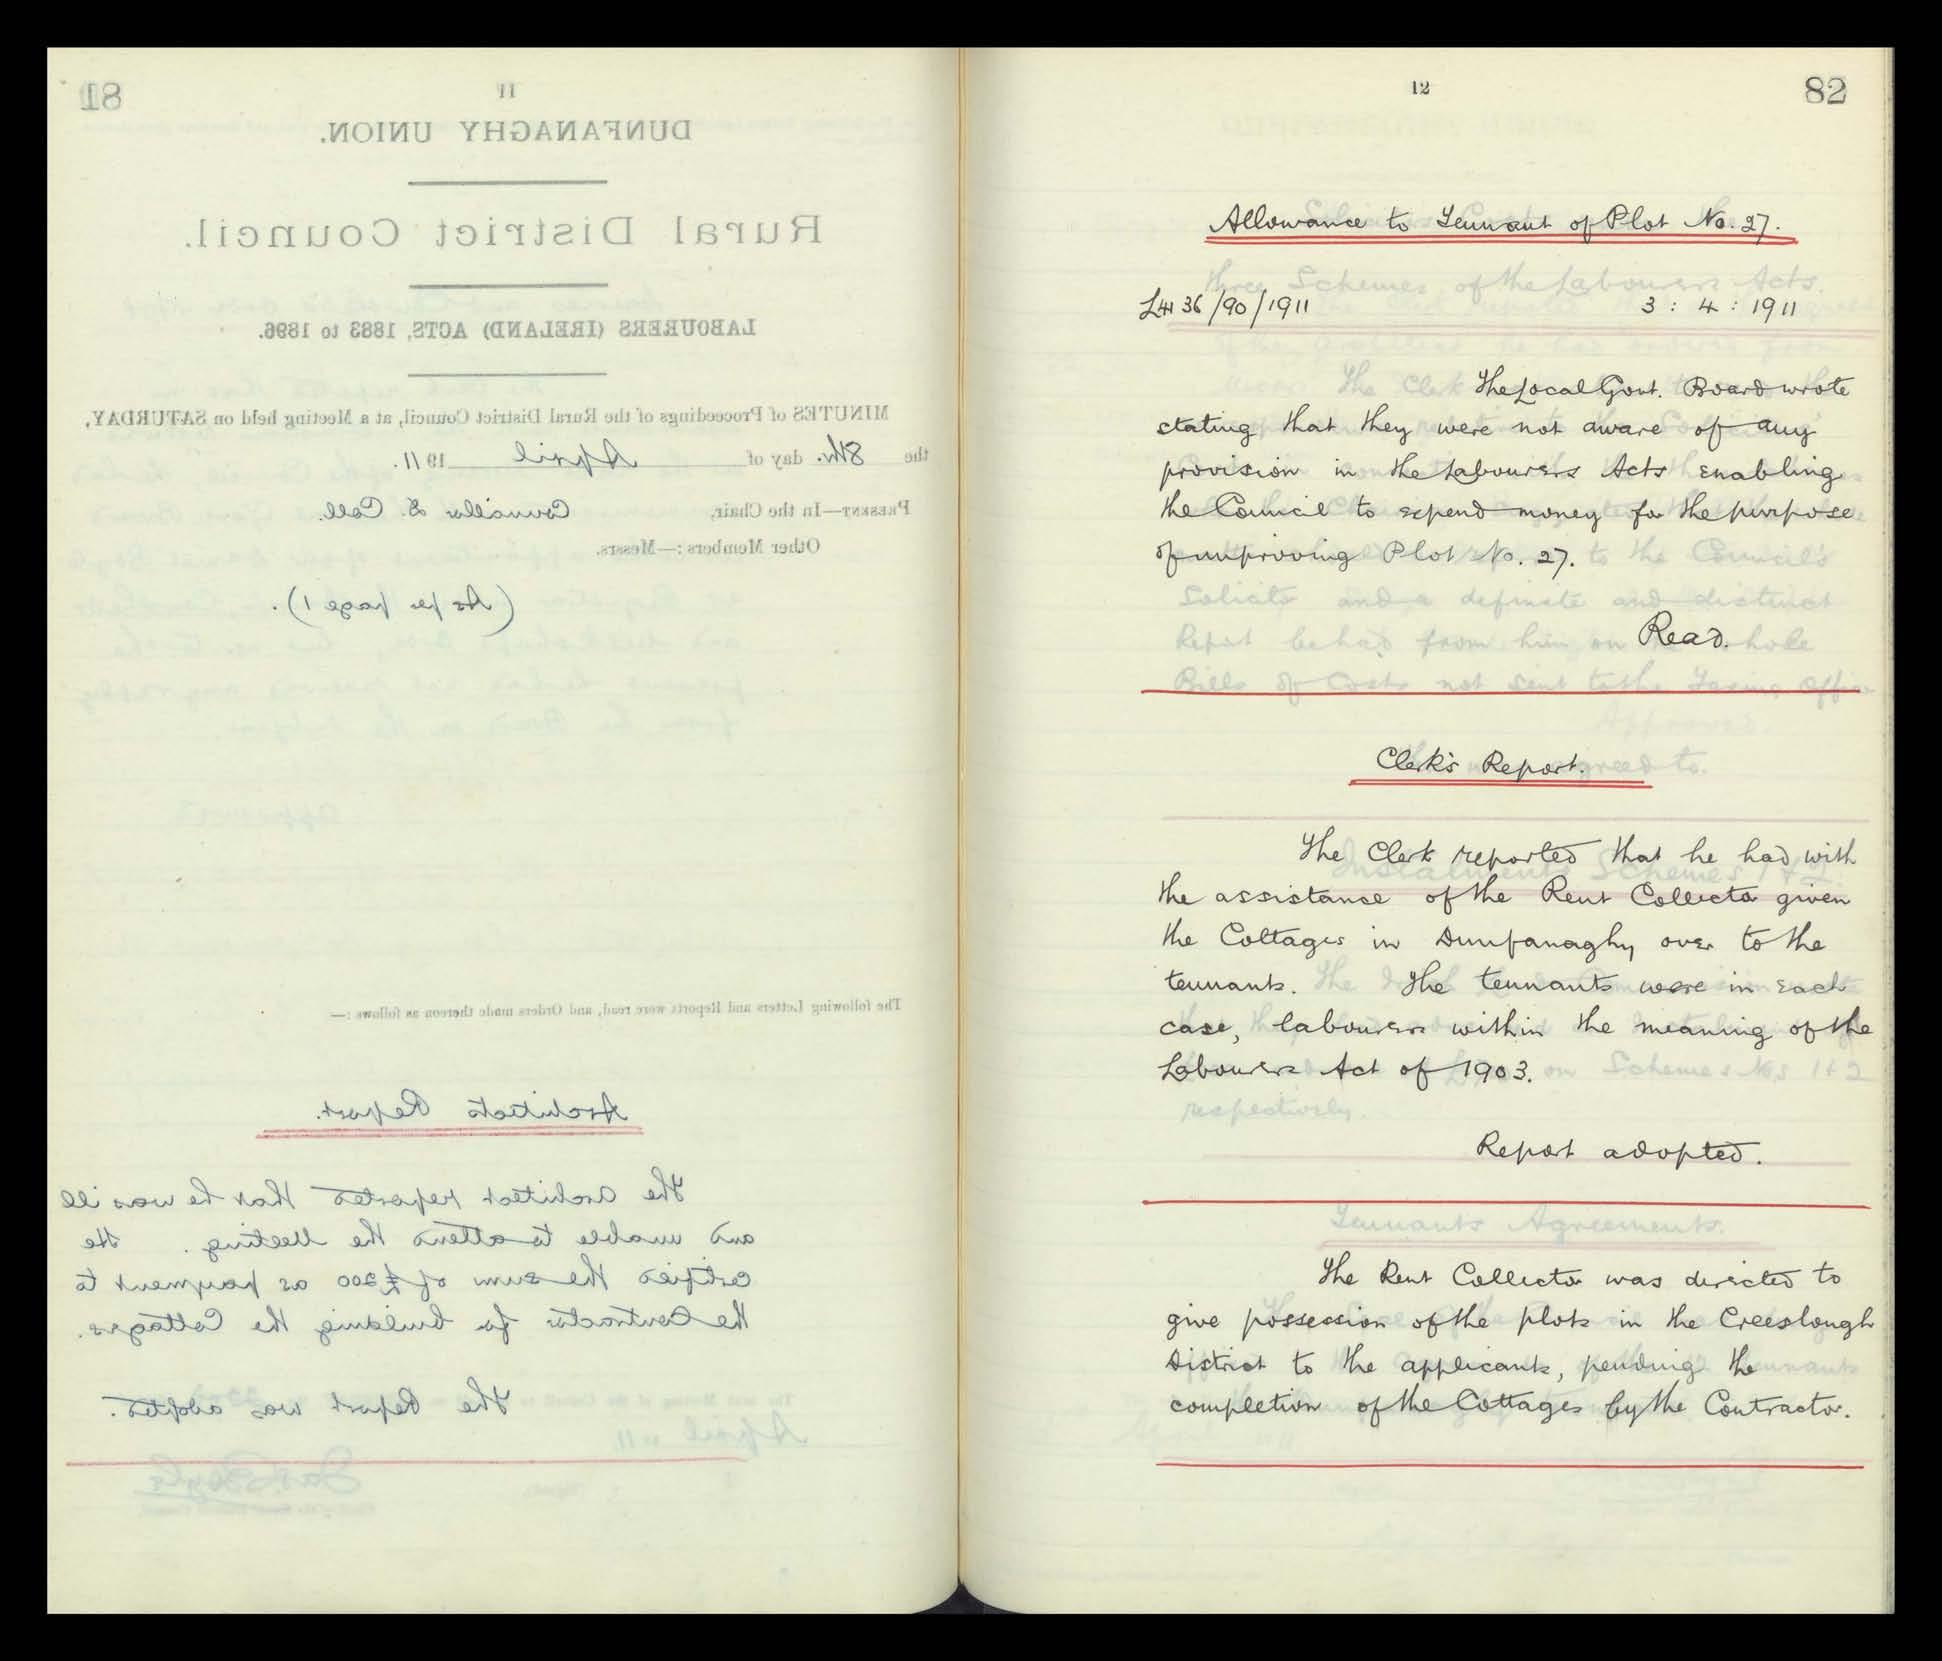 81
11
DUNFANAGHY UNION.
Rural District Council.
LABOURERS (IRELAND) ACTS, 1883 to 1896.
MINUTES of Proceedings of the Rural District Council, at a Meeting held on SATURDAY,
the 8th. day of April 1911.
PRESENT—In the Chair, Councillor D. Coll.
Other Members:—Messrs.
(As per page 1).
The following Letters and Reports were read, and Orders made thereon as follows:—
Architects Report.
The Architect reported that he was ill
and unable to attend the Meeting. He
certified the sum of £200 as payment to
the Contractor for building the Cottages.
The Report was adopted.
12
82
Allowance to Tennant of Plot No. 27.
36/90/1911 3 : 4 : 1911
The Local Govt. Board wrote
stating that they were not aware of any
provision in the Labourers Acts enabling
the Council to expend money for the purpose
of improving Plot No. 27.
Read.
Clerk's Report.
The Clerk reported that he had with
the assistance of the Rent Collector given
the Cottages in Dunfanaghy over to the
tennants. The tennants were in each
case, labourers within the meaning of the
Labourers Act of 1903.
Report adopted.
The Rent Collector was directed to
give possession of the plots in the Creeslough
District to the applicants, pending the
completion of the Cottages by the Contractor.